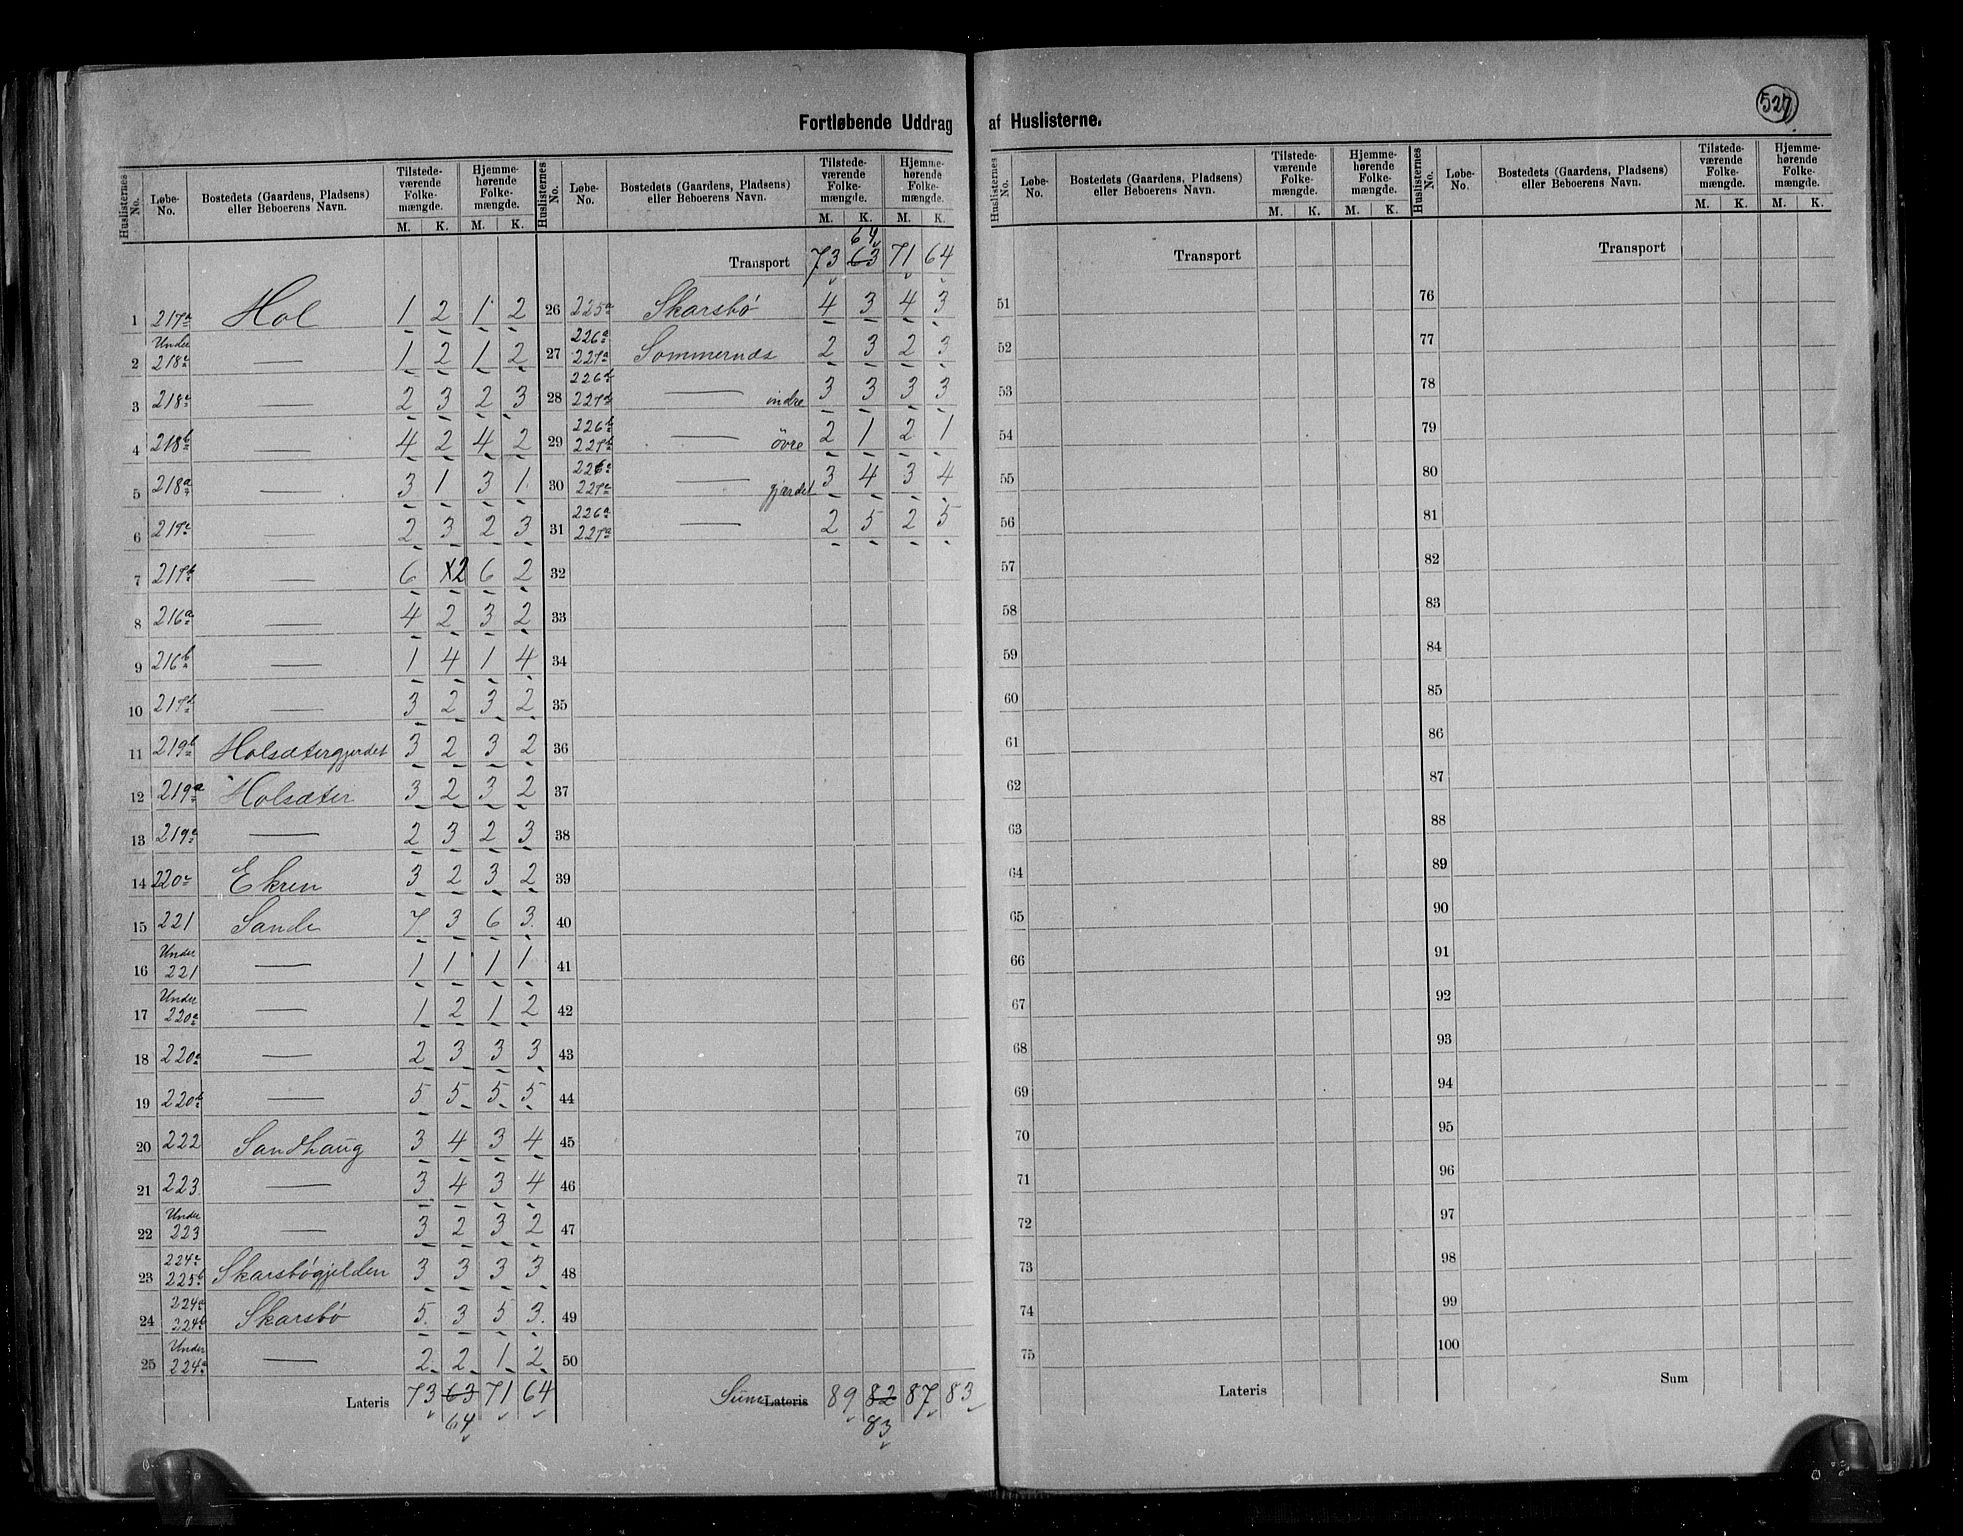 527
Fortløbende Uddrag af Huslisterne.
Huslisternes No. Løbe-No. Bostedets (Gaardens, Pladsens) eller Beboerens Navn. Tilstedeværende Folkemængde. M. K. Hjemmehørende Folkemængde. M. K.
1 217a Hol 1 2 1 2
2 Under 218a — 1 2 1 2
3 218a — 2 3 2 3
4 218b — 4 2 4 2
5 218a — 3 1 3 1
6 — 2 3 2 3
7 — 6 2 6 2
8 216a — 4 2 3 2
9 216b — 1 4 1 4
10 217b — 3 2 3 2
11 219b Holsætergjerdet 3 2 3 2
12 219a Holsæter 3 2 3 2
13 219a — 2 3 2 3
14 220a Ekren 3 2 3 2
15 221 Sande 7 3 6 3
16 Under 221 — 1 1 1 1
17 Under 220a — 1 2 1 2
18 220a — 2 3 3 3
19 220b — 5 5 5 5
20 222 Sandhaug 3 4 3 4
21 223 — 3 4 3 4
22 Under 223 — 3 2 3 2
23 224a 225b Skarsbøgjelden 3 3 3 3
24 224a 224b Skarsbø 5 3 5 3
25 Under 224a — 2 2 1 2
Lateris 73 63 71 64
64
Huslisternes No. Løbe-No. Bostedets (Gaardens, Pladsens) eller Beboerens Navn. Tilstedeværende Folkemængde. M. K. Hjemmehørende Folkemængde. M. K.
64
Transport 73 63 71 64
26 225a Skarsbø 4 3 4 3
27 226a 227a Sommernæs 2 3 2 3
28 226b 227b — indre 3 3 3 3
29 226b 227b — övre 2 1 2 1
30 226a 227a — gjærdet 3 4 3 4
31 226a 227a — 2 5 2 5
32
33
34
35
36
37
38
39
40
41
42
43
44
45
46
47
48
49
50
Sum Lateris 89 82 87 83
83
Huslisternes No. Løbe-No. Bostedets (Gaardens, Pladsens) eller Beboerens Navn. Tilstedeværende Folkemængde. M. K. Hjemmehørende Folkemængde. M. K.
Transport
51
52
53
54
55
56
57
58
59
60
61
62
63
64
65
66
67
68
69
70
71
72
73
74
75
Lateris
Huslisternes No. Løbe-No. Bostedets (Gaardens, Pladsens) eller Beboerens Navn. Tilstedeværende Folkemængde. M. K. Hjemmehørende Folkemængde. M. K.
Transport
76
77
78
79
80
81
82
83
84
85
86
87
88
89
90
91
92
93
94
95
96
97
98
99
100
Sum